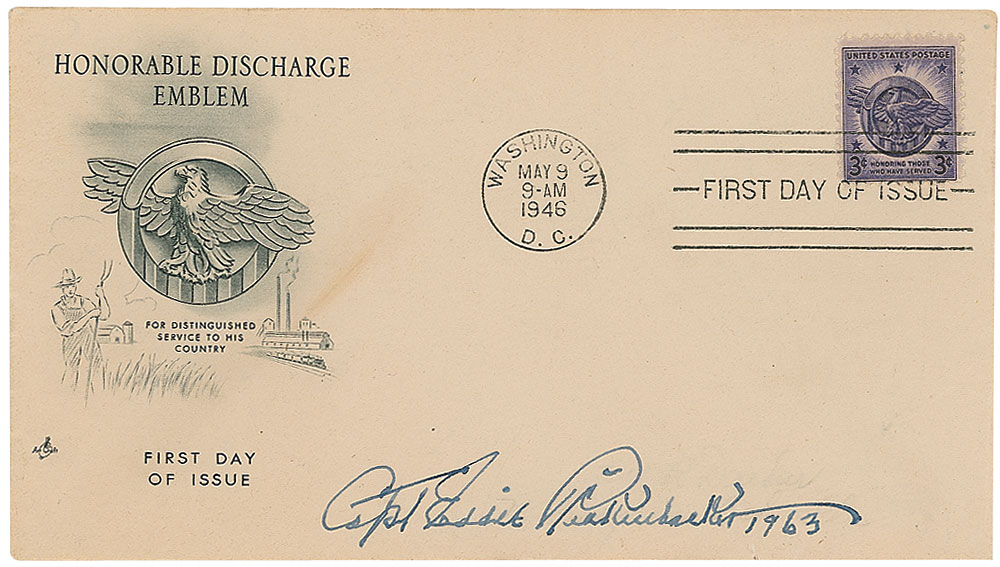 HONORABLE DISCHARGE
EMBLEM
FOR DISTINGUISHED
SERVICE TO HIS
COUNTRY
FIRST DAY
OF ISSUE
WASHINGTON
MAY 9
9-AM
1946
D. C.
UNITED STATES POSTAGE
3¢ HONORING THOSE 3¢
WHO HAVE SERVED
FIRST DAY OF ISSUE
Capt Eddie Rickenbacker 1963